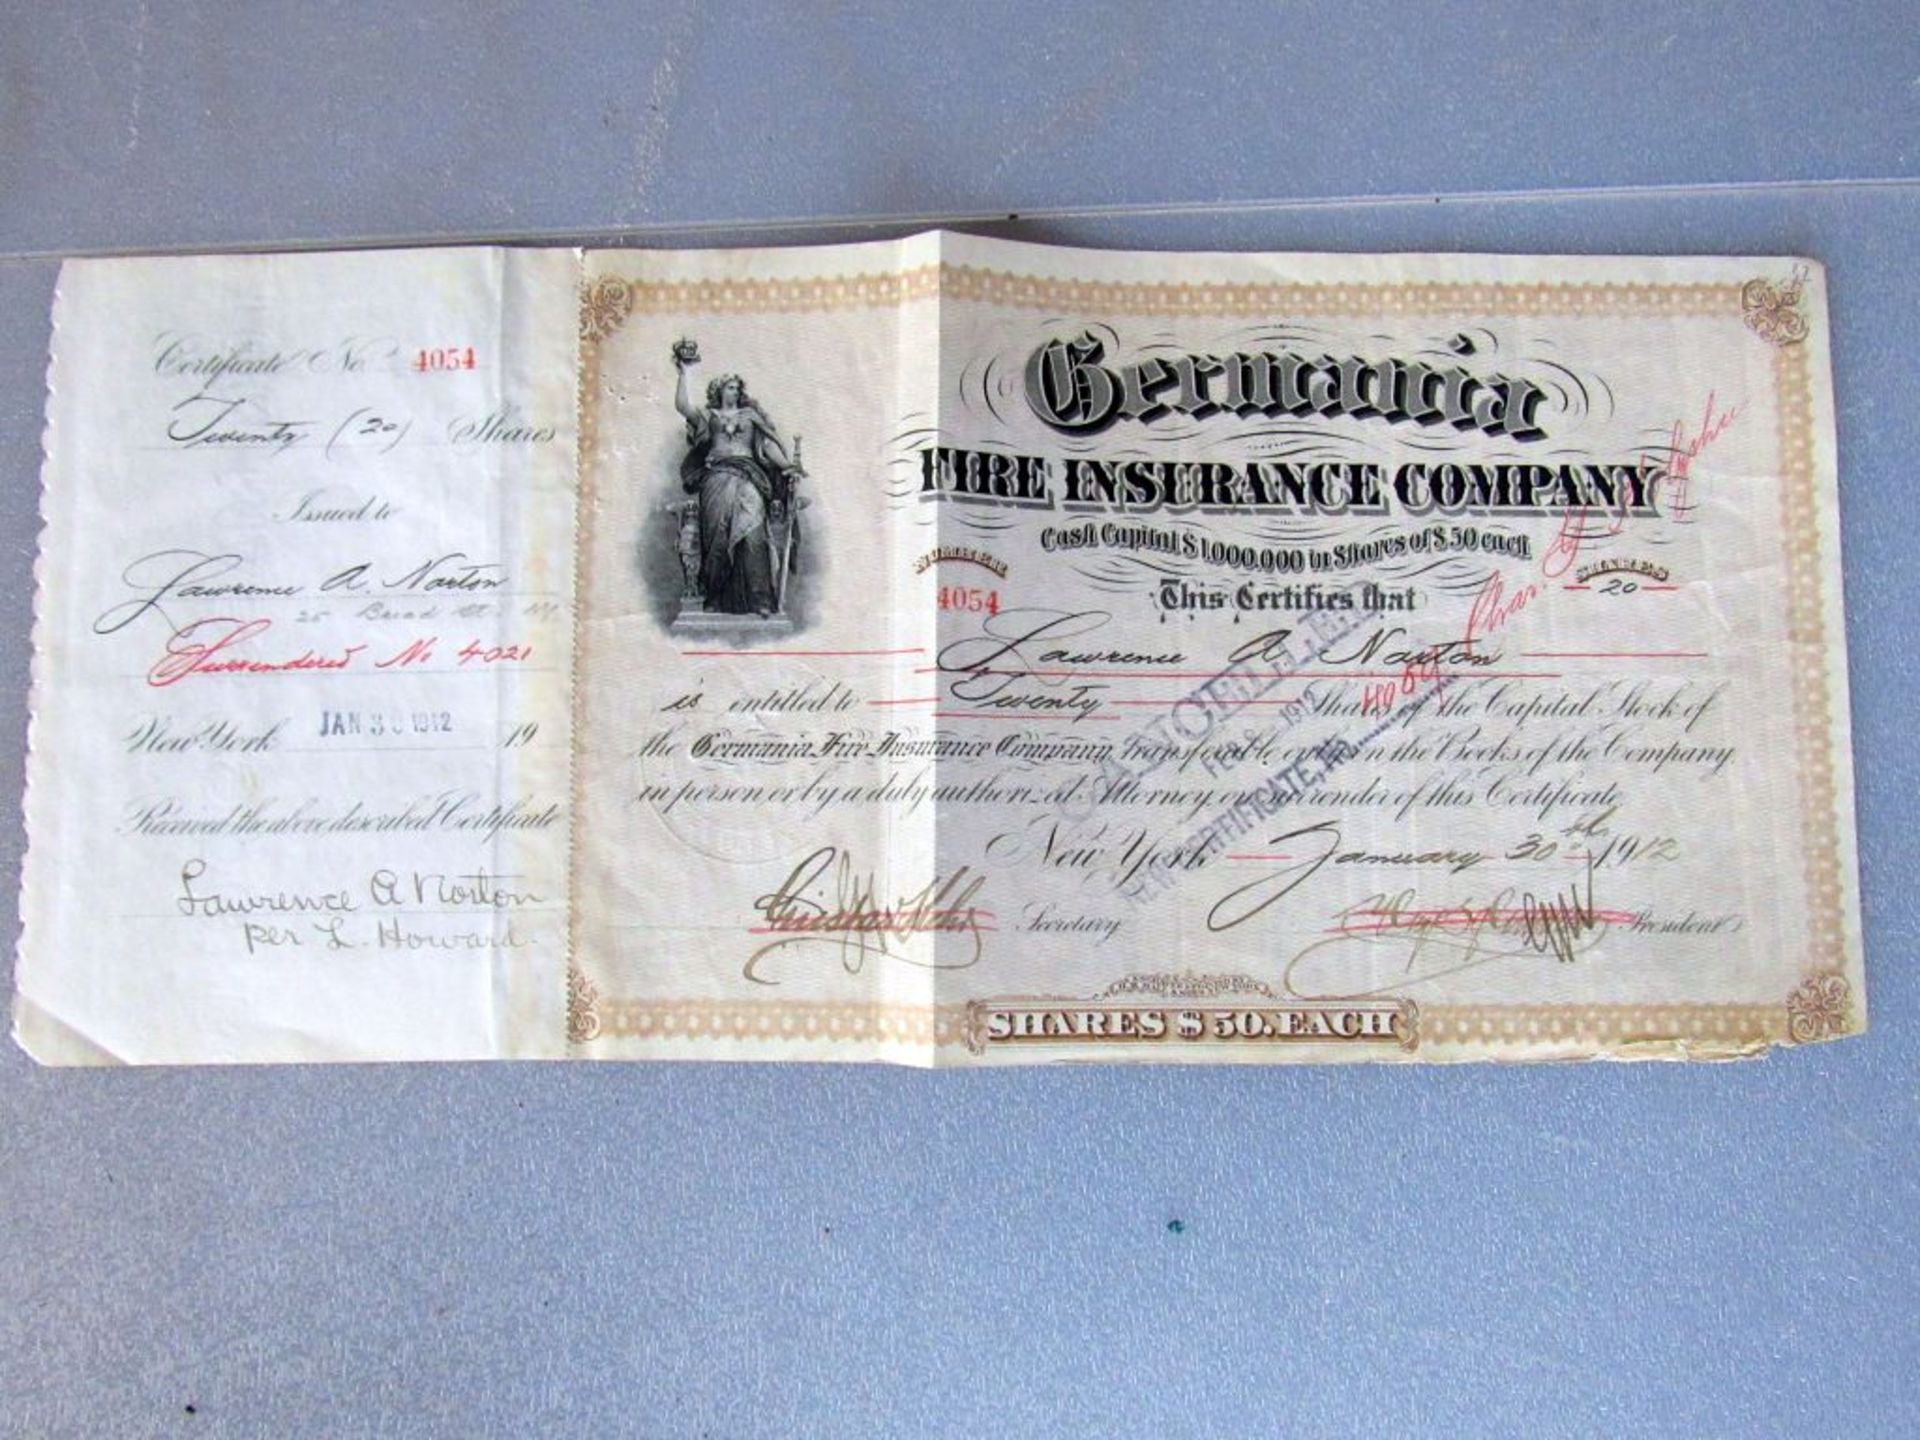 Certificate No. 4054
Twenty (20) Shares
Issued to
Lawrence A. Norton
25 Broad St. NY
Surrendered No 4021
New York JAN 30 1912 19
Received the above described Certificate
Lawrence A Norton
per L. Howard.
Germania
FIRE INSURANCE COMPANY
Cash Capital $1,000,000 in Shares of $50 each
NUMBER
4054
SHARES
20
This Certifies that
Lawrence A Norton
is entitled to Twenty Shares of the Capital Stock of
the Germania Fire Insurance Company, transferable only on the Books of the Company,
in person, or by a duly authorized Attorney, on surrender of this Certificate.
New York January 30th 1912
Secretary
President
CANCELLED
FEB 1912
NEW CERTIFICATE, No. 4059
Chas.
SHARES $50. EACH